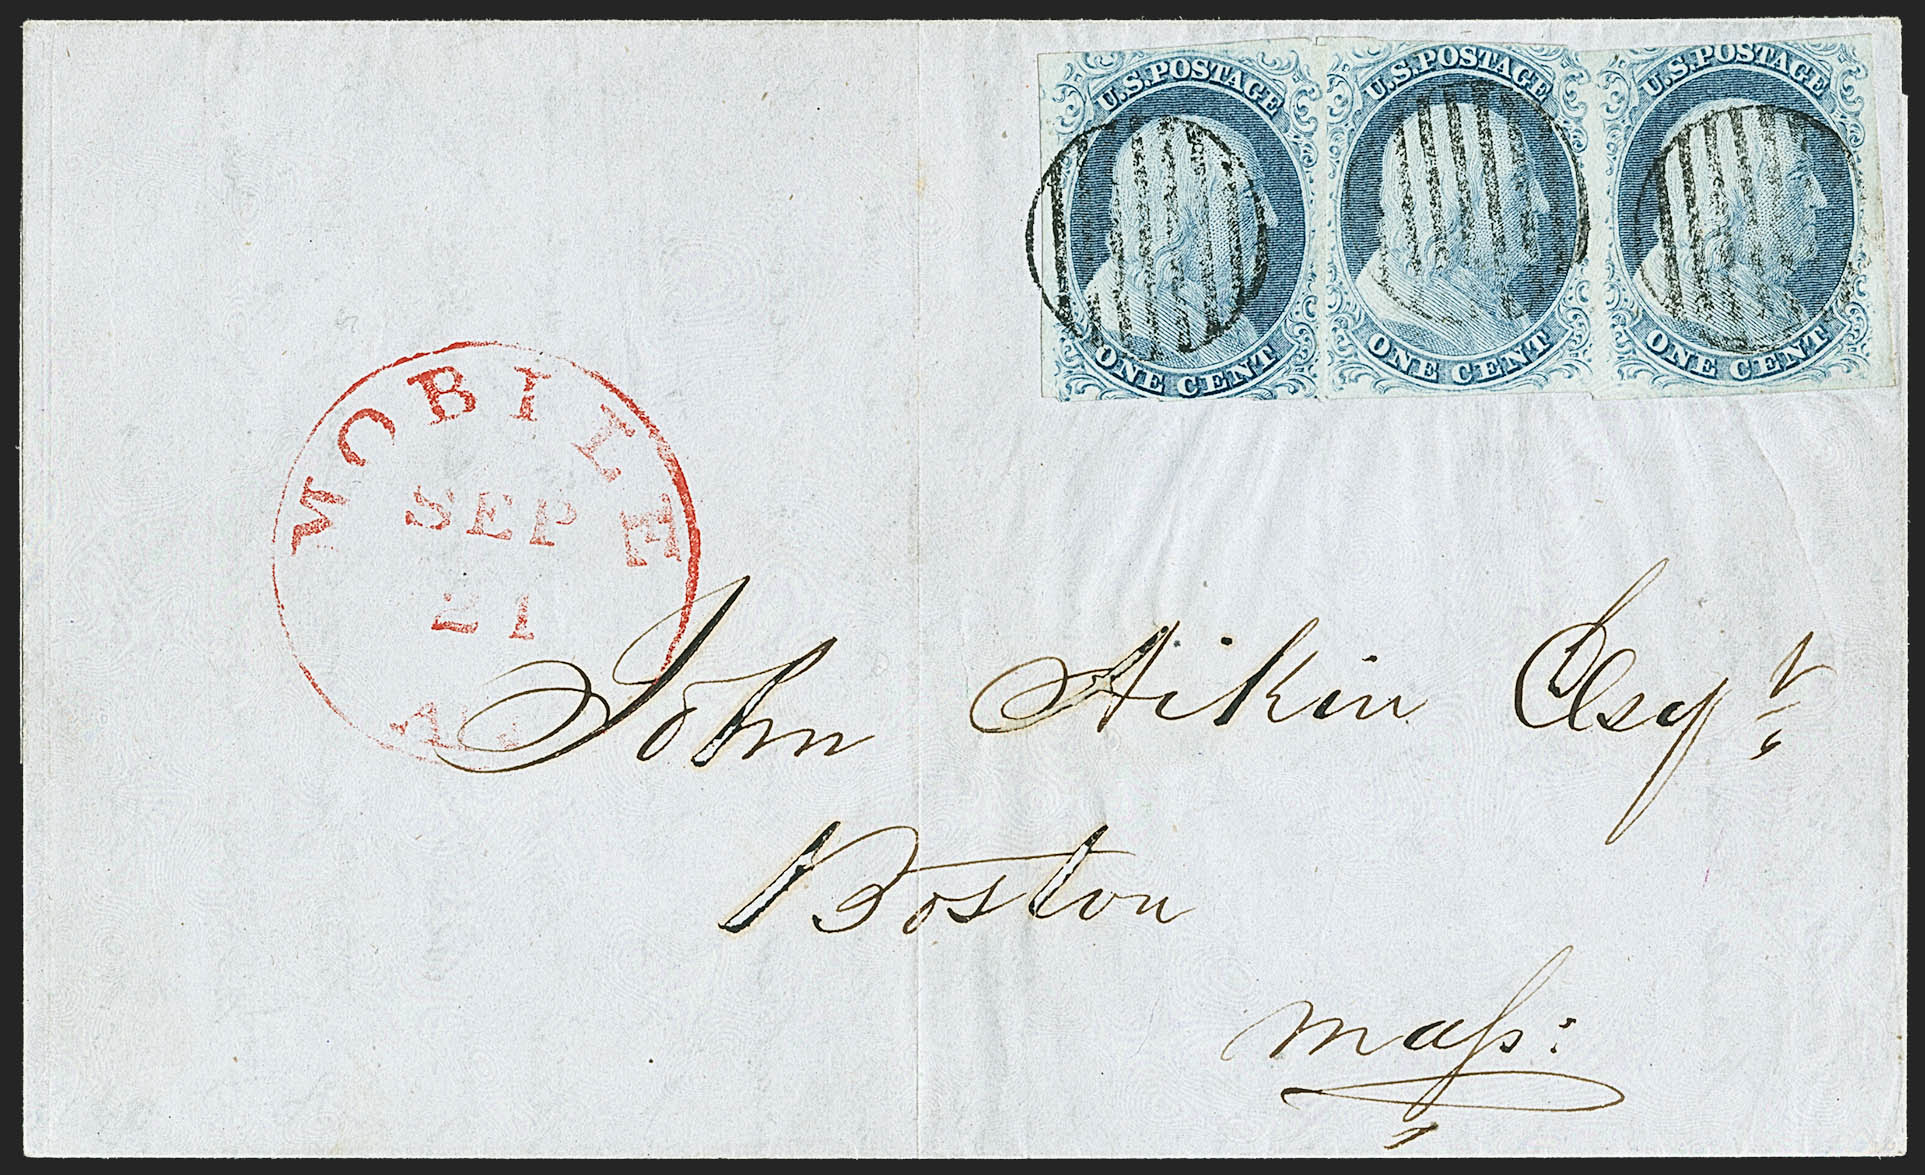 U.S. POSTAGE U.S. POSTAGE U.S. POSTAGE
ONE CENT ONE CENT ONE CENT
MOBILE
SEP
21
John Aikin Esqr
Boston
Mass: